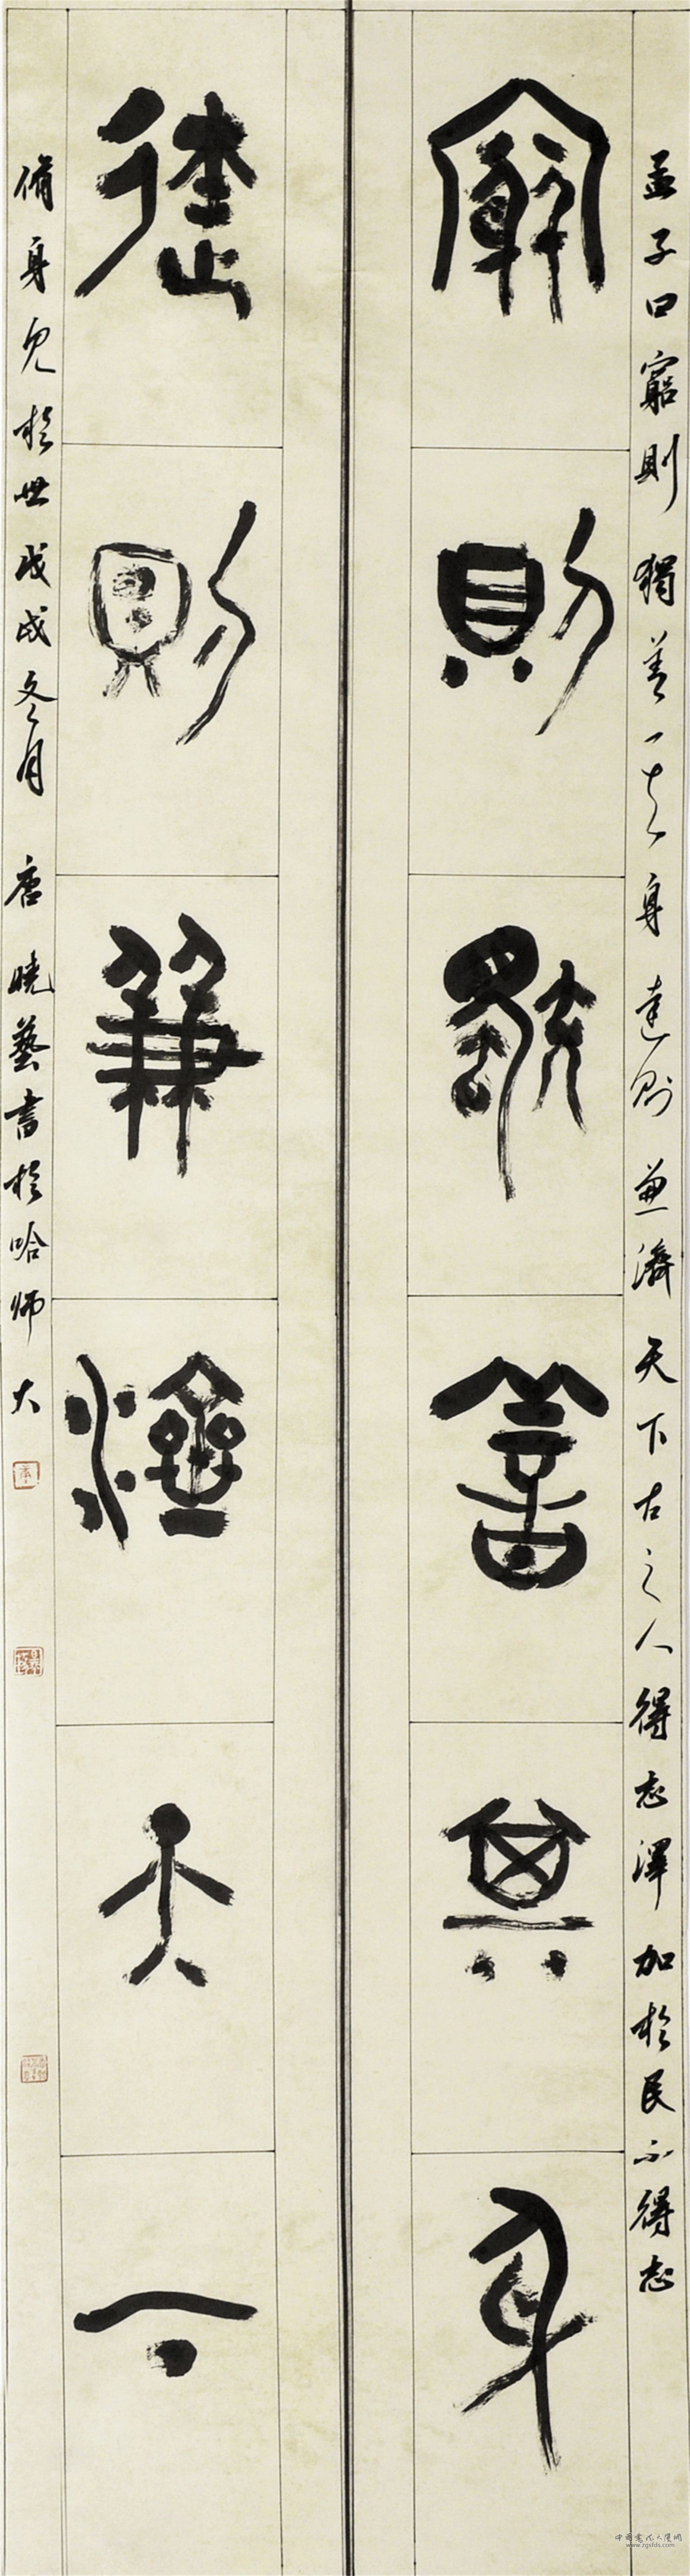 孟子曰窮則獨善其身達則兼濟天下古之人得志澤加於民不得志
窮則獨善其身
達則兼濟天下
脩身見於世戊戌冬月 唐曉藝書於哈師大
www.zgsfds.com